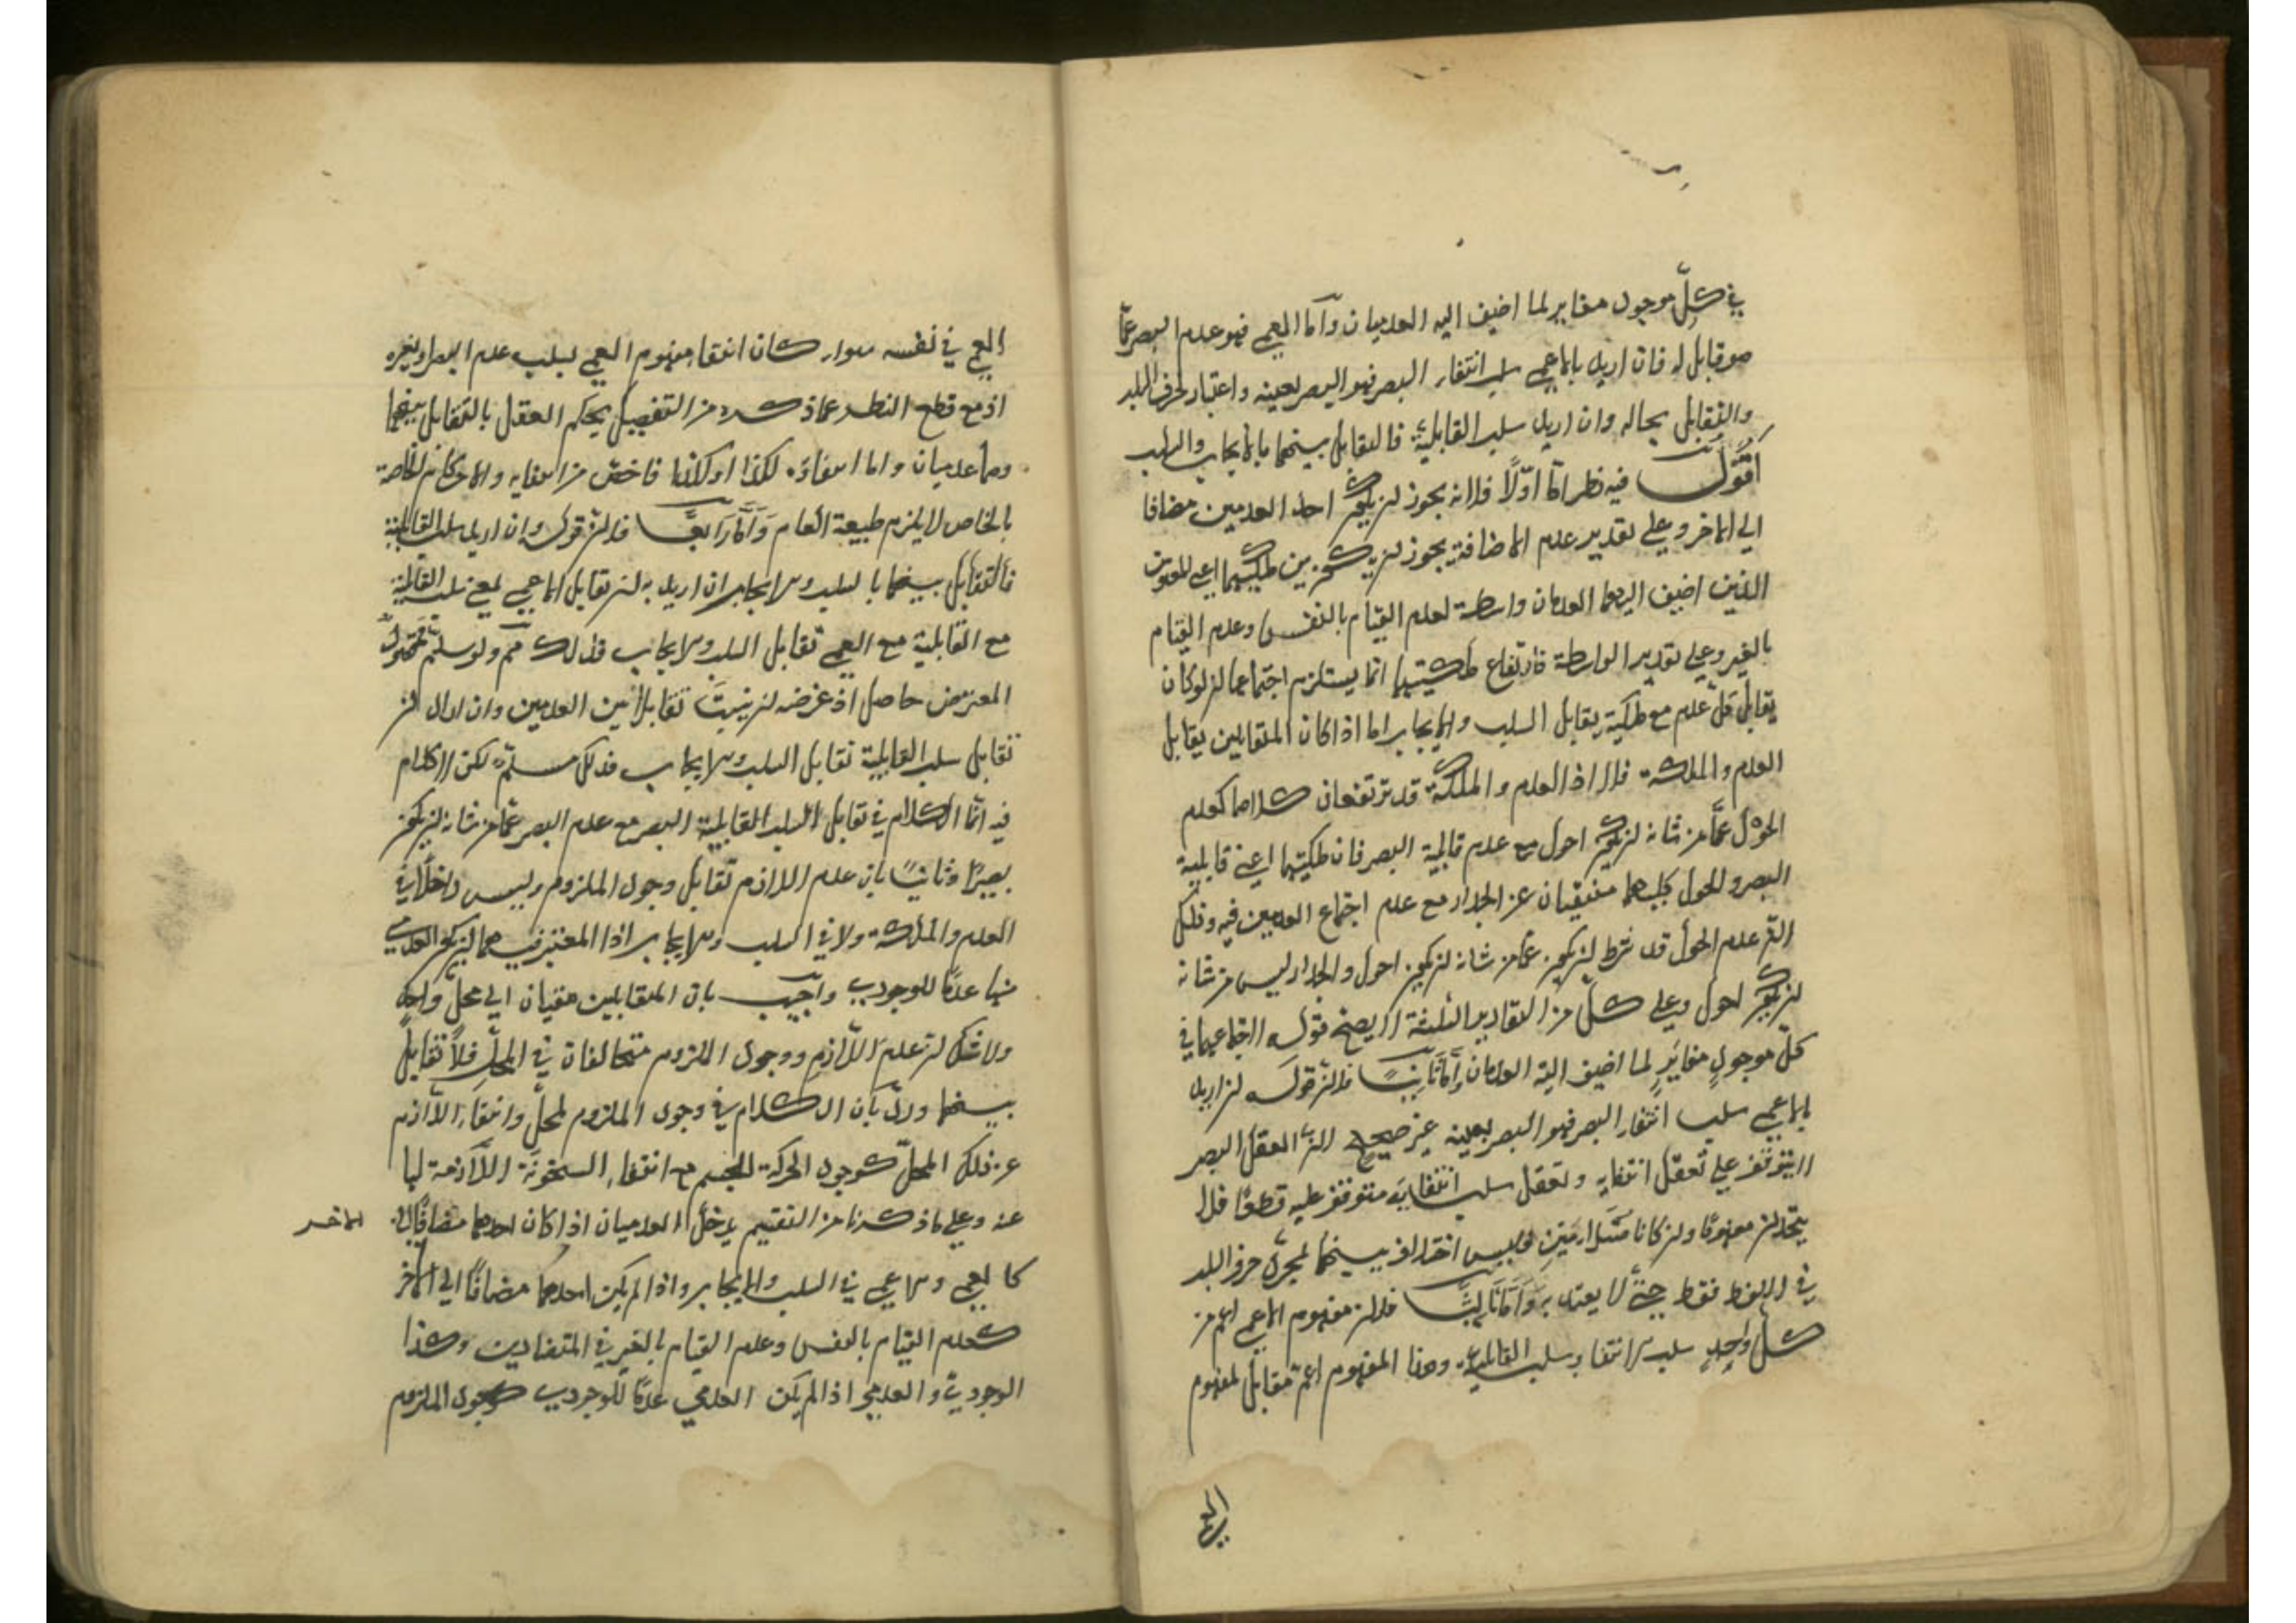 في كلّ موجود مغاير لما اضيف اليه العدميان وأما العمى فهو عدم البصر عمّا
هو قابل له فان اريد بالاعمى سلب انتفاء البصر فهو البصر بعينه واعتبار حرف السلب
والتقابل بحاله وان اريد سلب القابلية فالتقابل بينهما بالايجاب والسلب
اقول فيه نظر امّا اوّلًا فلانه يجوز ان يكون احد العدمين مضافا
الى الاخر وعلى تقدير عدم الاضافة يجوز ان يكون بين ملكتيهما اعني المفهومين
الذين اضيف اليهما العدمان واسطة لعدم القيام بالنفس وعدم القيام
بالغير وعلى تقدير الواسطة فارتفاع ملكتيهما انما يستلزم اجتماعهما ان لو كان
يقابل كل عدم مع ملكته تقابل السلب والايجاب اما اذا كان المتقابلين تقابل
العدم والملكة فلا اذ العدم والملكة قد يرتفعان كلاهما كعدم
الحول عمّا من شانه ان يكون احول مع عدم قابلية البصر فان ملكتيهما اعني قابلية
البصر والحول كليهما منفيتان عن الجدار مع عدم اجتماع العدمين فيه وذلك
لان عدم الحول قد شرط ان يكون عما من شانه ان يكون احول والجدار ليس من شانه
ان يكون احول وعلى كلّ من التقادير الثلثة لا يصح قوله لاجتماعهما في
كلّ موجود مغاير لما اضيف اليه العدمان وأمّا ثانيًا فلان قوله ان اريد
بالاعمى سلب انتفاء البصر فهو البصر بعينه غير صحيح لان تعقل البصر
لا يتوقف على تعقل انتفايه وتعقل سلب انتفايه متوقف عليه قطعًا فلا
يتّحدان مفهومًا وان كانا متلازمين وليس الافتراق بينهما بمجرّد حرف السلب
في اللفظ فقط حتى لا يعتد به وأمّا ثالثًا فلان مفهوم الاعمى اعم من
كلّ واحدٍ سلب الانتفاء وسلب القابلية وهذا المفهوم اعم مقابل لمفهوم
العمى
العمى في نفسه سواء كان انتفاء مفهوم العمى لسلب عدم البصر او لغيره
اذ مع قطع النظر عما ذكره من التفصيل يحكم العقل بالتقابل بينهما
وهما عدميان واما انتفاؤه لكذا او كذا فاخص من انتفايه والاحكام الخاصة
بالخاص لا يلزم طبيعة العام وَأمّا رَابعًا فلان قوله وان اريد سلب القابلية
فالتقابل بينهما بالسلب والايجاب ان اريد به ان تقابل الاعمى بمعنى سلب القابلية
مع القابلية مع العمى تقابل السلب والايجاب فذلك مم ولو سلم فمقصود
المعترض حاصل اذ غرضه ان يثبت تقابلًا بين العدمين وان اراد ان
تقابل سلب القابلية تقابل السلب والايجاب فذلك مسلّم لكن لا كلام
فيه انما الكلام في تقابل السلب القابلية البصر مع عدم البصر عمّا من شانه ان يكون
بصيرًا وثانيًا بان عدم اللازم تقابل وجود الملزوم وليس داخلًا في
العدم والملكة ولا في السلب والايجاب اذا المعتبر فيهما ان يكون العدمي
منهما عدمًا للوجودي وأجيب بان المتقابلين مقيسان الى محل واحدٍ
ولا شك ان عدم اللازم ووجود الملزوم متخالفان في المحل فلا تقابل
بينهما وردّ بان الكلام في وجود الملزوم لمحلّ وانتفاء اللازم
عن ذلك المحلّ كوجود الحركة للجسم مع انتفاء السخونة اللازمة لها
عنه وعلى ما ذكرنا من التقسيم يدخل العدميان اذا كان احدهما مضافًا الى الاخر
كالعمى والاعمى في السلب والايجاب واذا لم يكن احدهما مضافًا الى الاخر
كعدم القيام بالنفس وعدم القيام بالغير في المتضادين وكذا
الوجودي والعدمي اذا لم يكن العدمي عدمًا للوجودي كوجود الملزوم